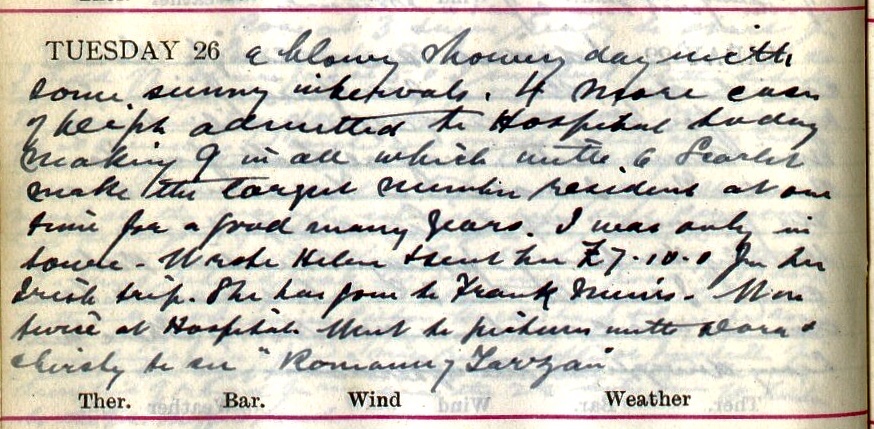 TUESDAY 26 a blowy showery day with
some sunny intervals. 4 more cases
of Diph admitted to Hospital today
making 9 in all which with 6 Scarlet
make the largest number resident at one
time for a good many years. I was only in
town - Wrote Helen & sent her £7-10-0 for her
Irish trip. She has gone to Frank - Was
twice at Hospital. Went to pictures with &
to see "Romance of Tarzan"
Ther. Bar. Wind Weather